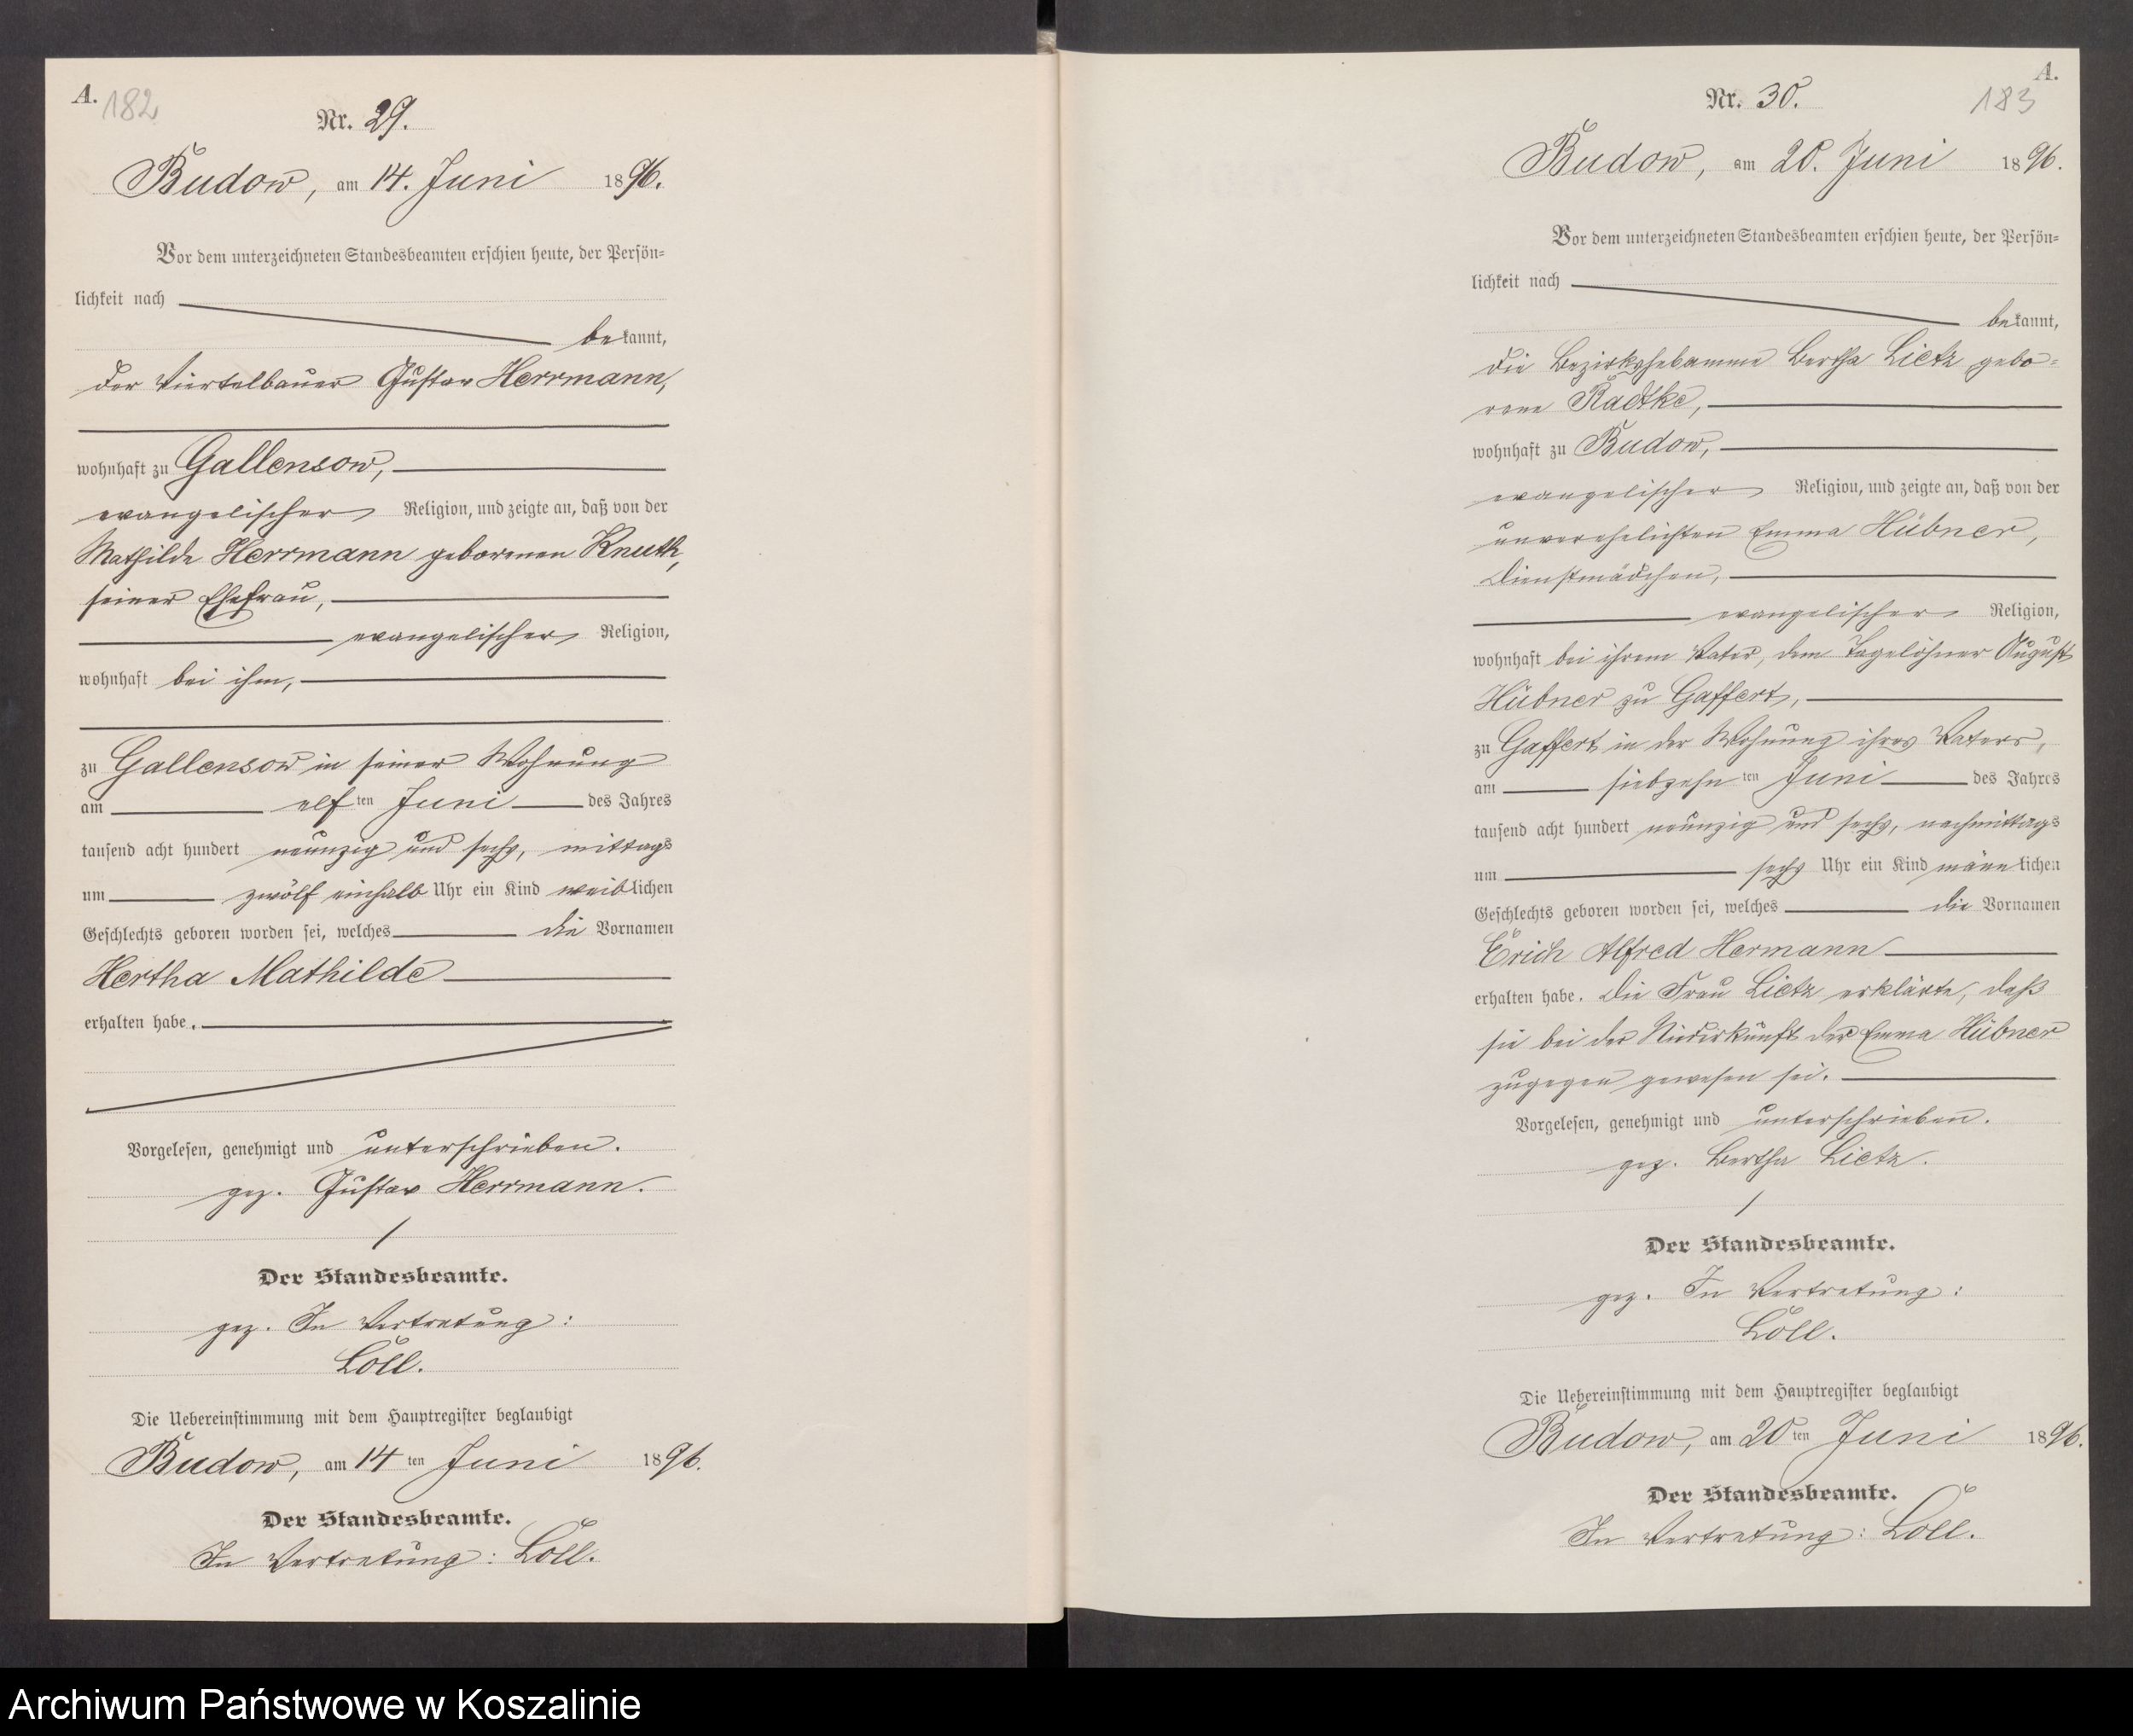 A. 182
Nr. 29.
Budow, am 14. Juni 1896.
Vor dem unterzeichneten Standesbeamten erschien heute, der Persön=
lichkeit nach
bekannt,
der Viertelbauer Gustav Herrmann,
wohnhaft zu Gallensow,
evangelischer Religion, und zeigte an, daß von der
Mathilde Herrmann geborenen Knuth,
seiner Ehefrau,
evangelischer Religion,
wohnhaft bei ihm,
zu Gallensow in seiner Wohnung
am elf ten Juni des Jahres
tausend acht hundert neunzig und sechs, mittags
um zwölf einhalb Uhr ein Kind weiblichen
Geschlechts geboren worden sei, welches die Vornamen
Hertha Mathilde
erhalten habe.
Vorgelesen, genehmigt und unterschrieben.
gez. Gustav Herrmann.
Der Standesbeamte.
gez. In Vertretung:
Löll.
Die Uebereinstimmung mit dem Hauptregister beglaubigt
Budow, am 14 ten Juni 1896.
Der Standesbeamte.
In Vertretung: Löll.
A.
183
Nr. 30.
Budow, am 20. Juni 1896.
Vor dem unterzeichneten Standesbeamten erschien heute, der Persön=
lichkeit nach
bekannt,
die Bezirkshebamme Bertha Lietz gebo=
rene Radtke,
wohnhaft zu Budow,
evangelischer Religion, und zeigte an, daß von der
unverehelichten Emma Hübner,
Dienstmädchen,
evangelischer Religion,
wohnhaft bei ihrem Vater, dem Tagelöhner August
Hübner zu Gaffert,
zu Gaffert in der Wohnung ihres Vaters,
am siebzehn ten Juni des Jahres
tausend acht hundert neunzig und sechs, nachmittags
um sechs Uhr ein Kind männlichen
Geschlechts geboren worden sei, welches die Vornamen
Erich Alfred Hermann
erhalten habe. Die Frau Lietz erklärte, daß
sie bei der Niederkunft der Emma Hübner
zugegen gewesen sei.
Vorgelesen, genehmigt und unterschrieben.
gez. Bertha Lietz.
Der Standesbeamte.
gez. In Vertretung:
Löll.
Die Uebereinstimmung mit dem Hauptregister beglaubigt
Budow, am 20 ten Juni 1896.
Der Standesbeamte.
In Vertretung: Löll.
Archiwum Państwowe w Koszalinie